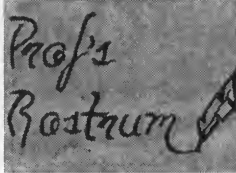 Prof's
Rostrum